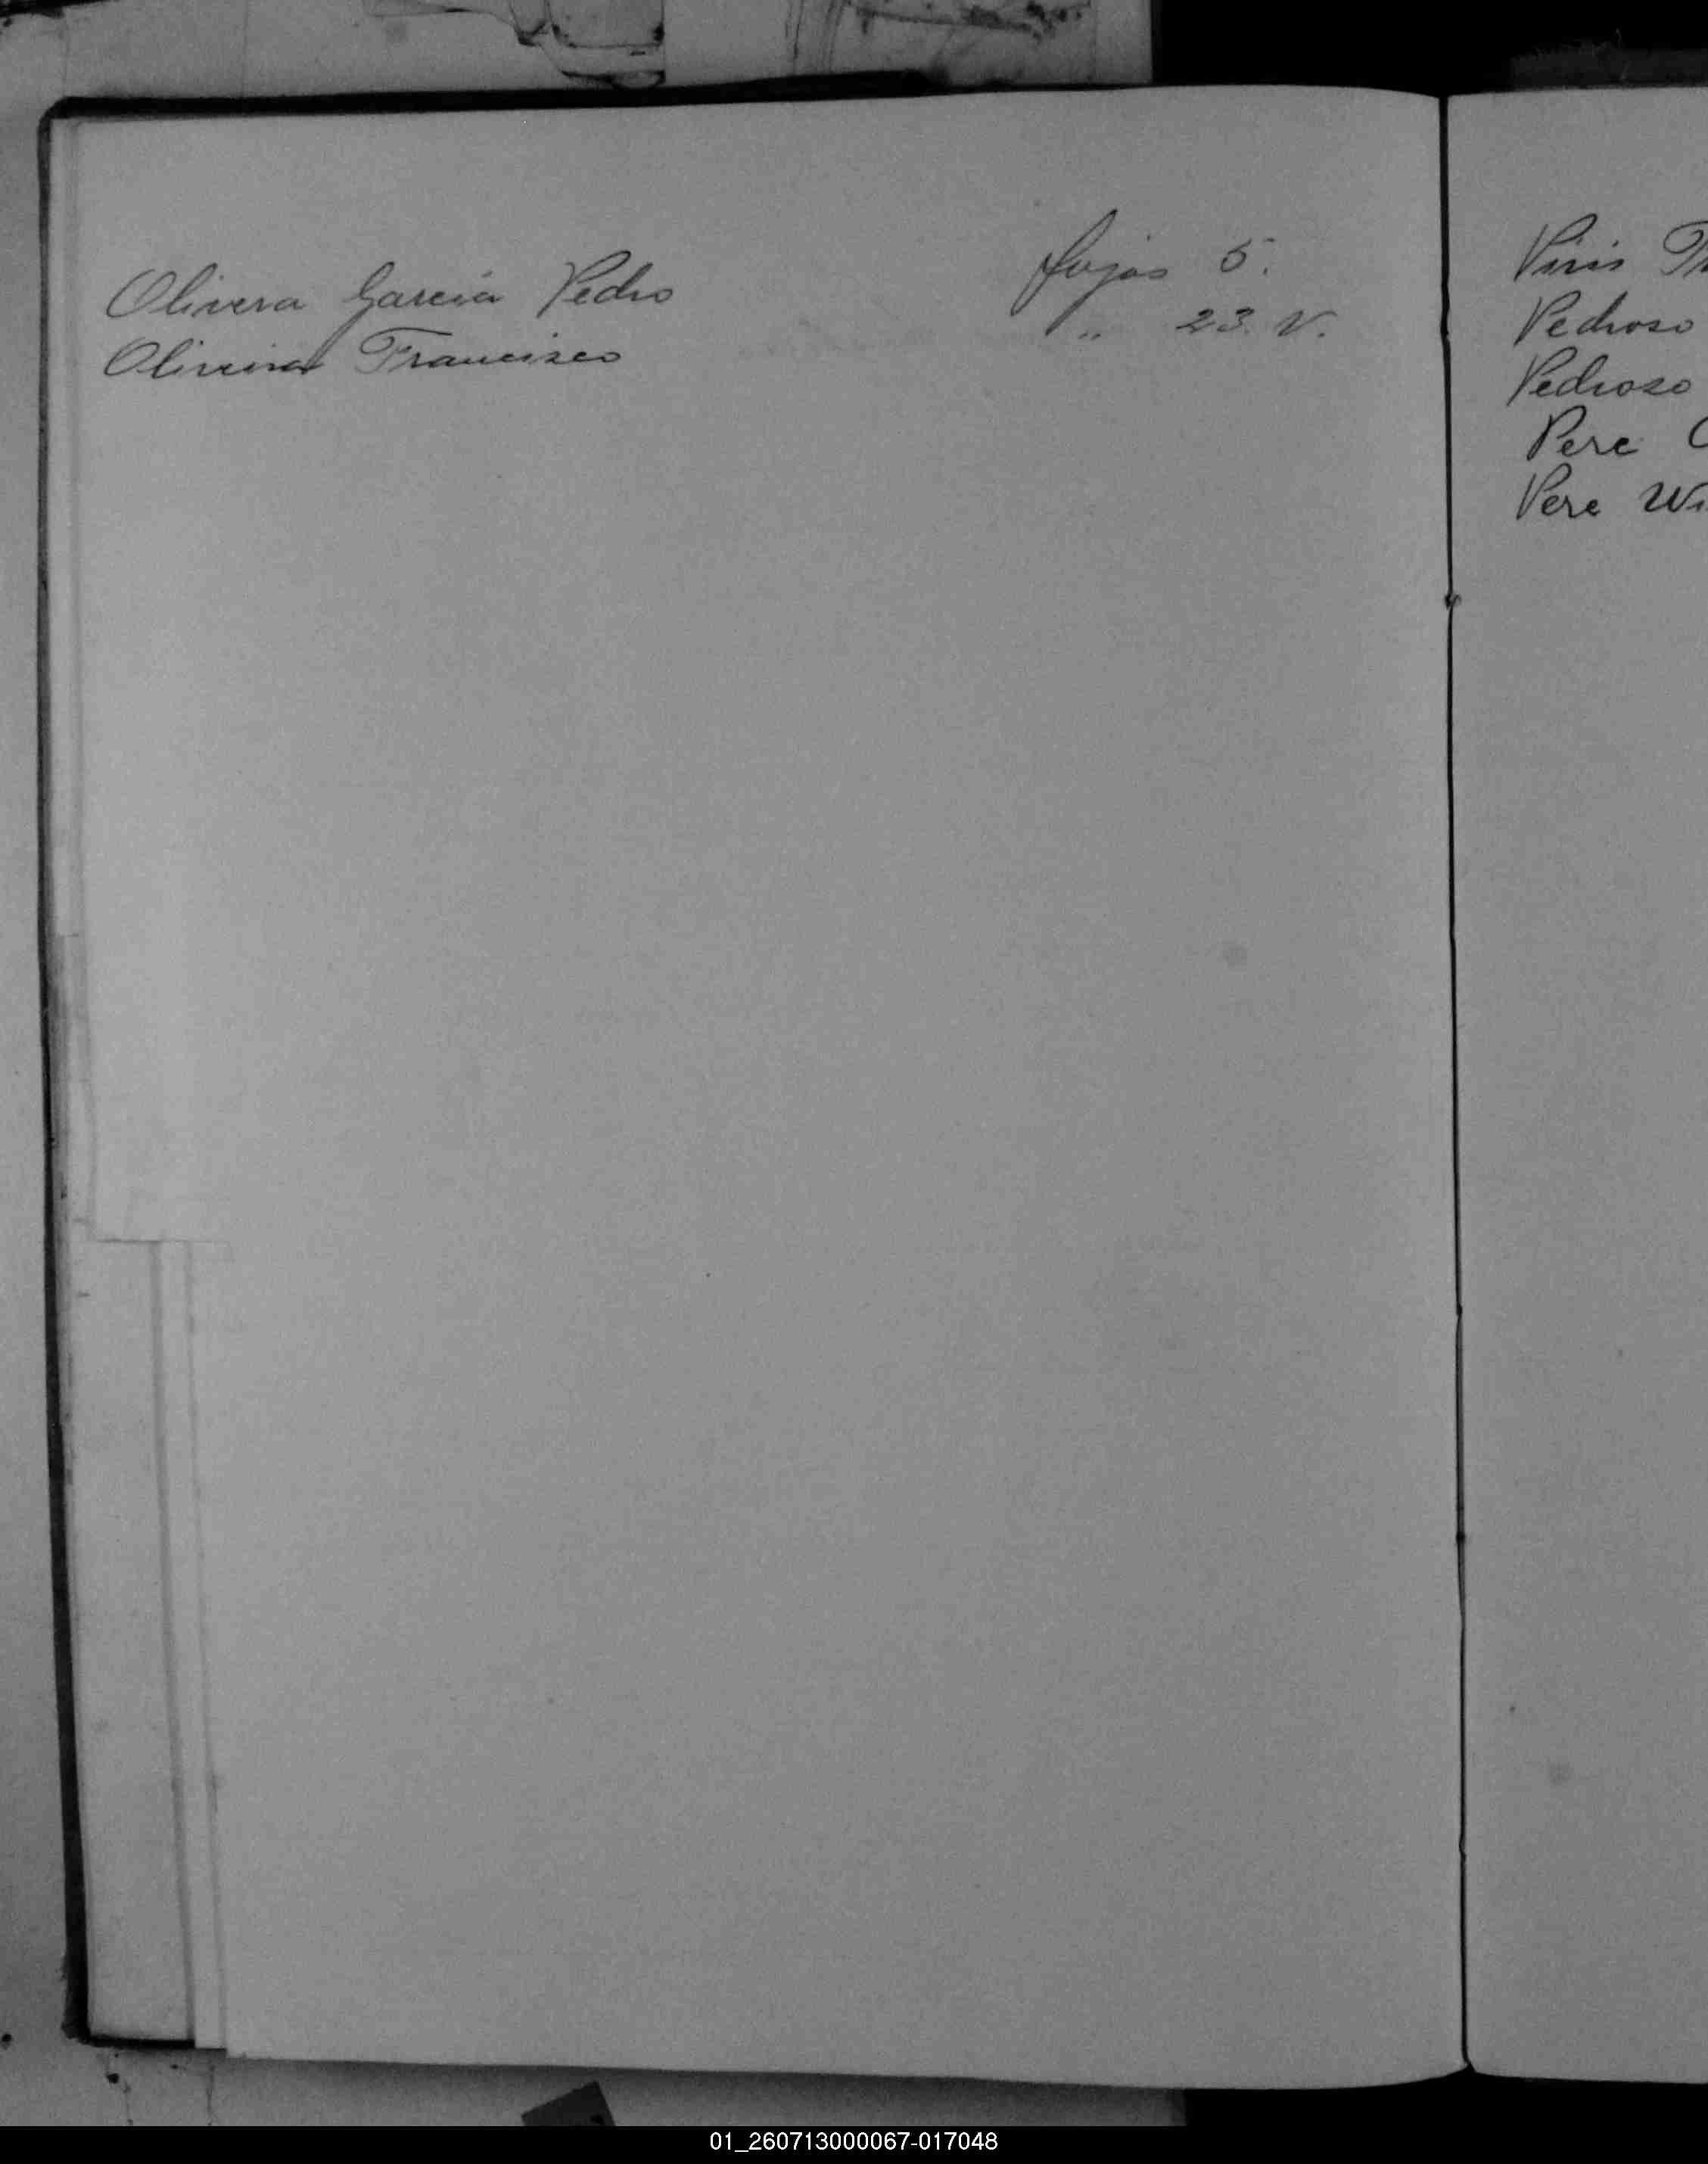 Olivera Garcia Pedro fojas 5.
Oliveira Francisco " 23 V.
Piris
Pedroso
Pedroso
Pere
Pere
01_260713000067-017048